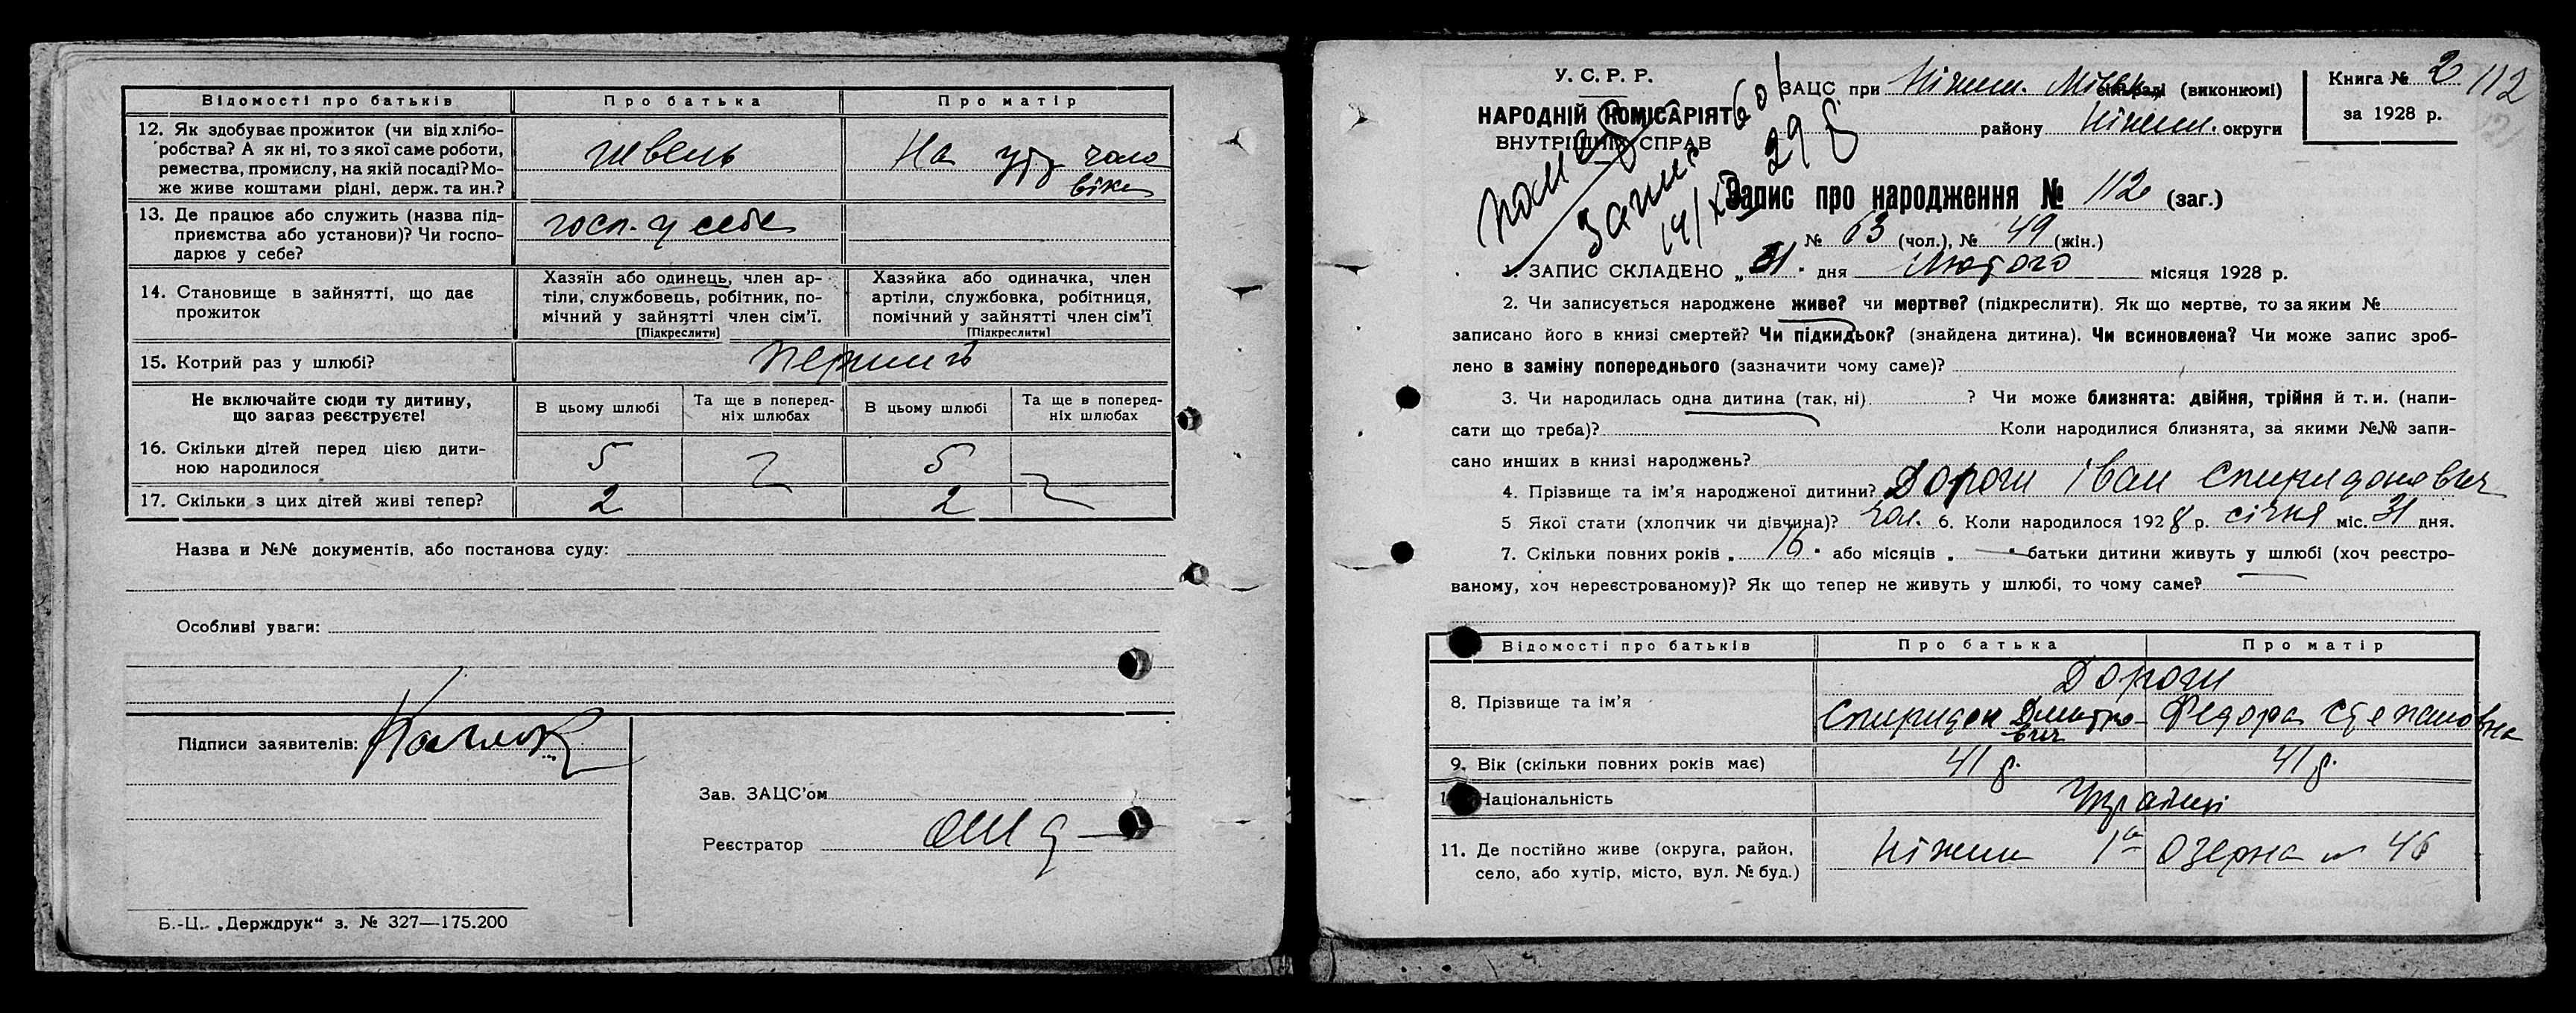 Відомості про батьків Про батька Про матір
12. Як здобуває прожиток (чи від хлібо-
робства? А як ні, то з якої саме роботи,
ремества, промислу, на якій посаді? Мо-
же живе коштами рідні, держ. та ин.?
швець На утр чоло
віка
13. Де працює або служить (назва під-
приємства або установи)? Чи госпо-
дарює у себе?
госп. у себе
14. Становище в зайнятті, що дає
прожиток
Хазяїн або одинець, член ар-
тілі, службовець, робітник, по-
мічний у зайнятті член сім'ї.
[Підкреслити]
Хазяйка або одиначка, член
артілі, службовка, робітниця,
помічний у зайнятті член сім'ї
[Підкреслити]
15. Котрий раз у шлюбі? перший
Не включайте сюди ту дитину,
що зараз реєструєте!
В цьому шлюбі Та ще в поперед-
ніх шлюбах В цьому шлюбі Та ще в поперед-
ніх шлюбах
16. Скільки дітей перед цією дити-
ною народилося 5 5
17. Скільки з цих дітей живі тепер? 2 2
Назва и №№ документів, або постанова суду:
Особливі уваги:
Підписи заявителів:
Зав. ЗАЦС'ом
Реєстратор
Б.-Ц. „Держдрук“ з. № 327—175.200
У. С. Р. Р.
НАРОДНІЙ КОМІСАРІЯТ
ВНУТРІШНІХ СПРАВ
ЗАЦС при Ніжин. сільраді (виконкомі)
району Ніжин. округи
Книга № 2
за 1928 р.
112
Запис про народження № 112 (заг.)
№ 63 (чол.), № 49 (жін.)
1. ЗАПИС СКЛАДЕНО „ “ дня Лютого місяця 1928 р.
2. Чи записується народжене живе? чи мертве? (підкреслити). Як що мертве, то за яким №
записано його в книзі смертей? Чи підкидьок? (знайдена дитина). Чи всиновлена? Чи може запис зроб-
лено в заміну попереднього (зазначити чому саме)?
3. Чи народилась одна дитина (так, ні) ? Чи може близнята: двійня, трійня й т. и. (напи-
сати що треба)? Коли народилися близнята, за якими №№ запи-
сано инших в книзі народжень?
4. Прізвище та ім'я народженої дитини? Дорош Іван Спиридонович
5 Якої стати (хлопчик чи дівчина)? чол. 6. Коли народилося 1928 р. січня міс. 31 дня.
7. Скільки повних років „ 16 “ або місяців „ “ батьки дитини живуть у шлюбі (хоч реєстро-
ваному, хоч нереєстрованому)? Як що тепер не живуть у шлюбі, то чому саме?
Відомості про батьків Про батька Про матір
8. Прізвище та ім'я
Дорош
Спиридон Дмитро-
вич
Федора Степановна
9. Вік (скільки повних років має) 41 р. 41 р.
Національність Українці
11. Де постійно живе (округа, район,
село, або хутір, місто, вул. № буд.)
Ніжин 1а Озерна № 46